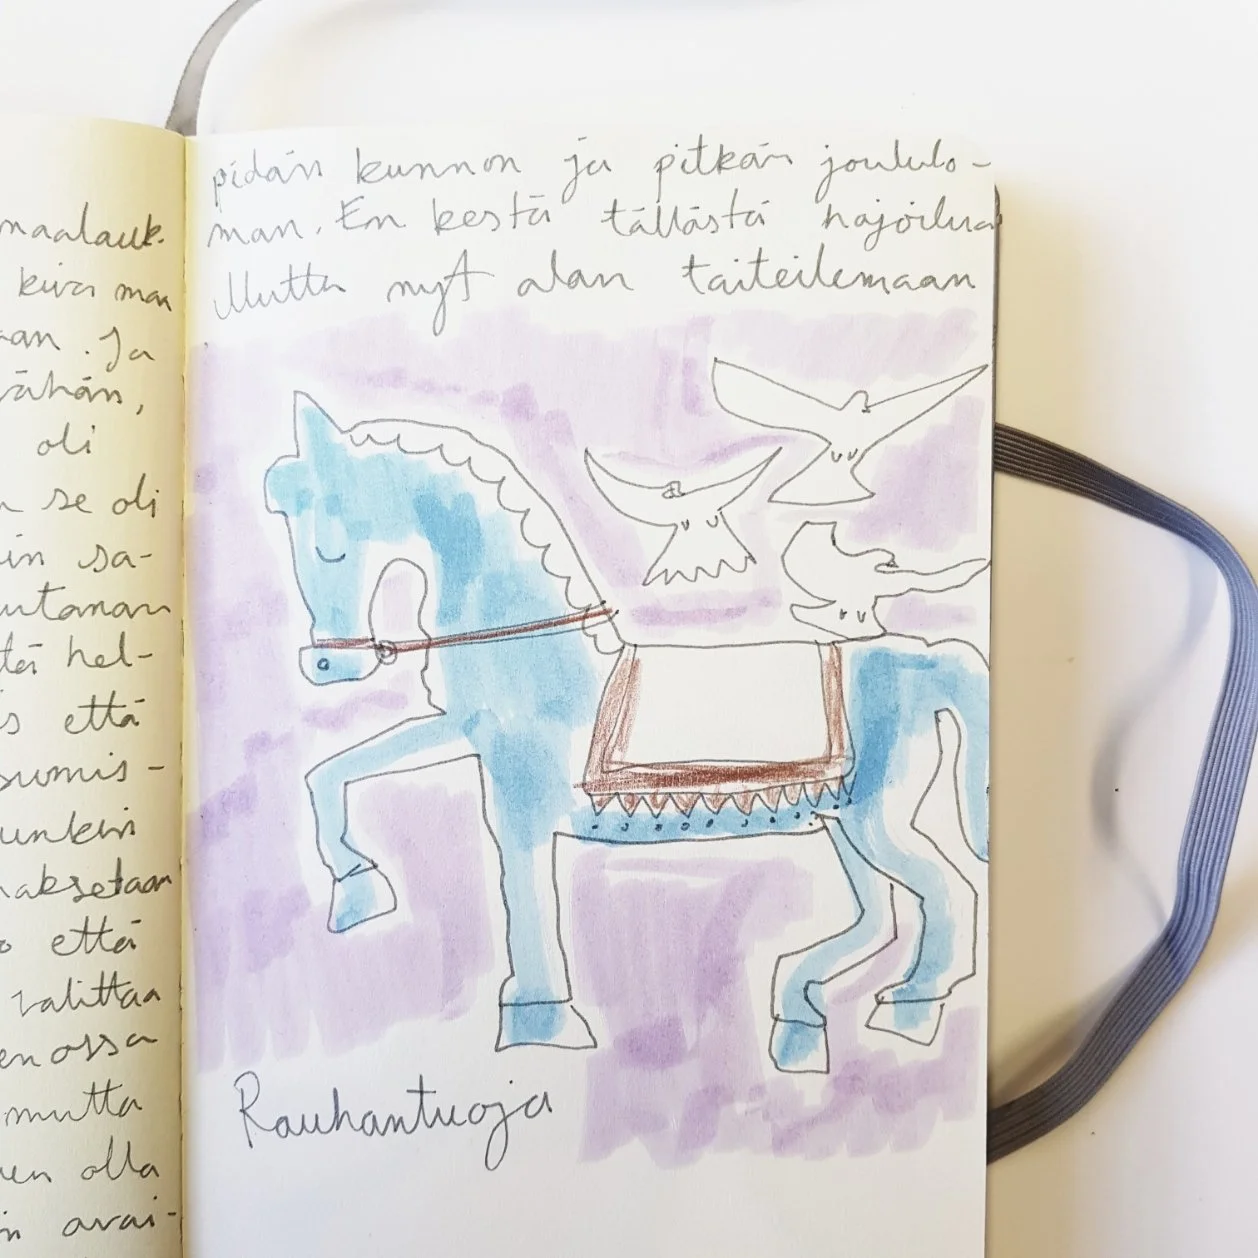 maalauk.
kiva maa
aan. Ja
vähän,
oli
n se oli
in sa-
utaman
tä hel-
s että
sumis-
unkin
maksetaan
o että
valittaa
enossa
mutta
en olla
n avai-
pidän kunnon ja pitkän joululo-
man. En kestä tällästä hajoilua
Mutta nyt alan taiteilemaan
Rauhantuoja